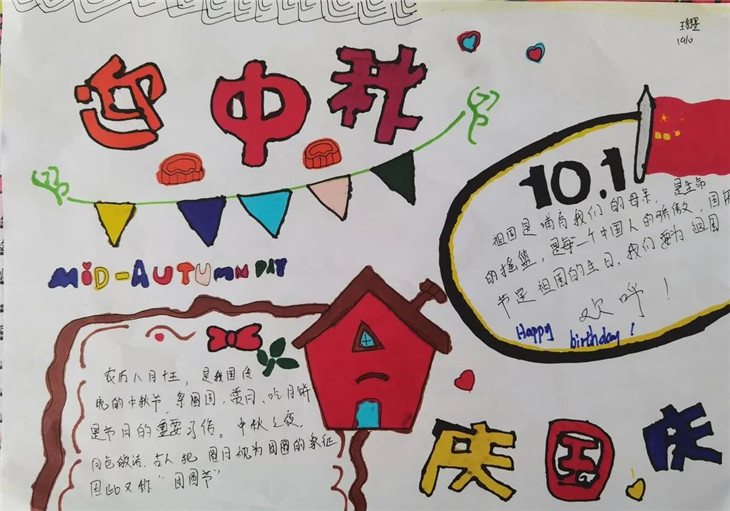 1910
迎中秋
10.1
祖国是哺育我们的母亲,是生命
的摇篮,是每一个中国人的骄傲。国庆
节是祖国的生日,我们要为祖国
欢呼!
Happy birthday!
MID-AUTUMN DAY
农历八月十五,是我国传
统的中秋节,祭团圆、赏月、吃月饼
是节日的重要习俗。中秋之夜,
月色皎洁,古人把圆月视为团圆的象征
因此又称“团圆节”
庆国庆